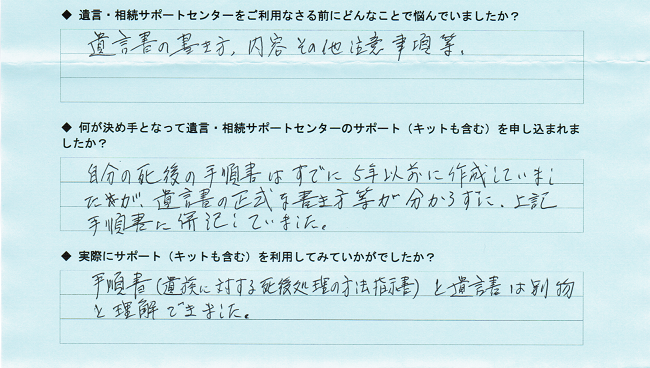 ◆ 遺言・相続サポートセンターをご利用なさる前にどんなことで悩んでいましたか？
遺言書の書き方、内容その他注意事項等、
◆ 何が決め手となって遺言・相続サポートセンターのサポート（キットも含む）を申し込まれま
したか？
自分の死後の手順書はすでに5年以前に作成していまし
たが、遺言書の正式な書き方等が分からずに、上記
手順書に併記していました。
◆ 実際にサポート（キットも含む）を利用してみていかがでしたか？
手順書(遺族に対する死後処理の方法指示書)と遺言書は別物
と理解できました。